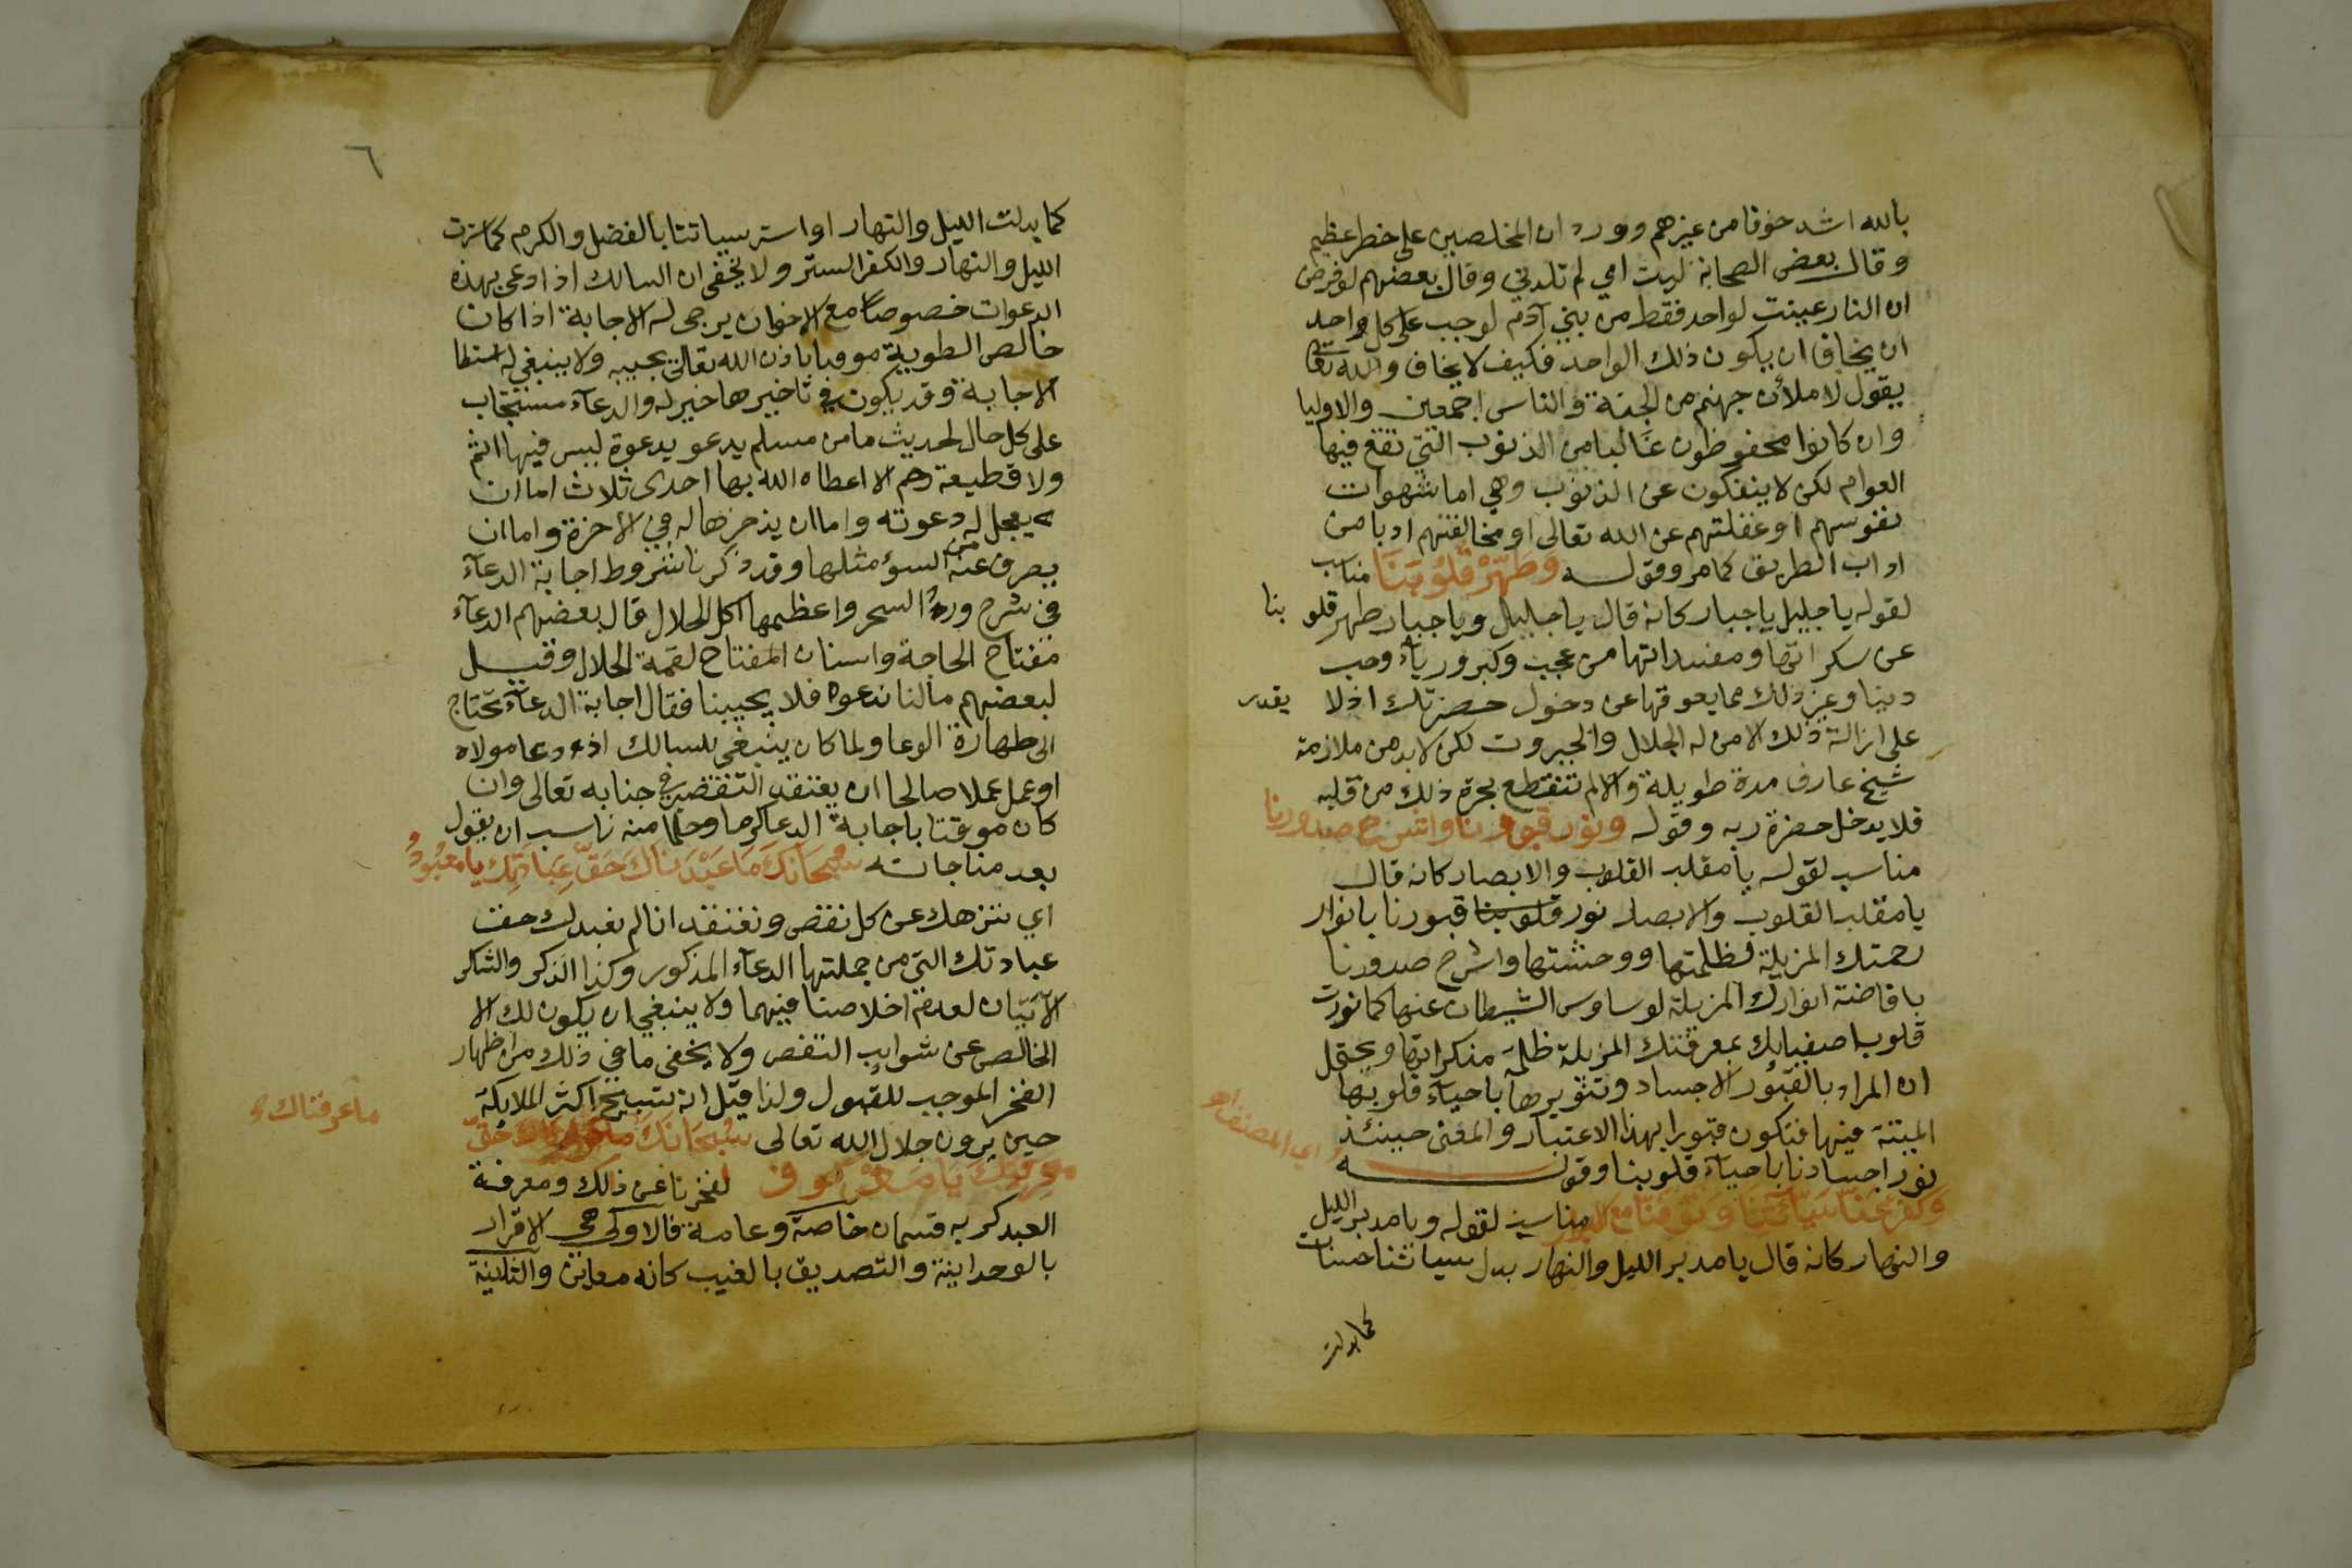 بالله اشد خوفا من غيرهم وورد ان المخلصين على خطر عظيم
وقال بعض الصحابة ليت امي لم تلدني وقال بعضهم لو فرض
ان النار عينت لواحد فقط من بني آدم لوجب على كل واحد
ان يخاف ان يكون ذلك الواحد فكيف لا يخاف والله تعالى
يقول لاملأن جهنم من الجنة والناس اجمعين والاوليا
وان كانوا محفوظون غالبا من الذنوب التي تقع فيها
العوام لكن لا ينفكون عن الذنوب وهي اما شهوات
نفوسهم او غفلتهم عن الله تعالى او مخالفتهم ادبا من
اداب الطريق كما مر وقوله وَطَهِّرْ قُلُوبَنَا مناسب
لقوله يا جليل يا جبار كانه قال يا جليل ويا جبار طهر قلوبنا
عن سكراتها ومفسداتها من عجب وكبر ورياء وحب
دنيا وغير ذلك مما يعوقها عن دخول حضرتك اذ لا يقدر
على ازالة ذلك الا من له الجلال والجبروت لكن لا بد من ملازمة
شيخ عارف مدة طويلة والا لم تنقطع بجرة ذلك من قلبه
فلا يدخل حضرة ربه وقوله ونور قبورنا واشرح صدورنا
مناسب لقوله يا مقلب القلوب والابصار كانه قال
يا مقلب القلوب والابصار نور قلوبنا قبورنا بانوار
رحمتك المزيلة لظلمتها ووحشتها واشرح صدورنا
بافاضة انوارك المزيلة لوساوس الشيطان عنها كما نورت
قلوب اصفيايك بمعرفتك المزيلة ظلمة منكراتها ويحتمل
ان المراد بالقبور الاجساد وتنويرها باحياء قلوبها
الميتة فيها فتكون قبورا بهذا الاعتبار والمعنى حينئذ
نور اجسادنا باحياء قلوبنا وقوله
اي المصنف اهـ
وَكَفِّرْ عَنَّا سَيِّآتِنَا وَتَوَفَّنَا مَعَ الابرار مناسب لقوله ويا مدبر الليل
والنهار كانه قال يا مدبر الليل والنهار بدل سيياتنا حسنات
كما بدلت
٦
كما بدلت الليل والنهار او استر سيياتنا بالفضل والكرم كما سترت
الليل والنهار والكفر الستر ولا يخفى ان السالك اذا دعى بهذه
الدعوات خصوصا مع الاخوان يرجى له الاجابة اذا كان
خالص الطوية موقنا باذن الله تعالى يجيبه ولا ينبغي له استبطا
الاجابة وقد يكون في تاخيرها خير له والدعاء مستجاب
على كل حال لحديث ما من مسلم يدعو بدعوة ليس فيها اثم
ولا قطيعة رحم الا اعطاه الله بها احدى ثلاث اما ان
يعجل له دعوته واما ان يدخرها له في الاخرة واما ان
يصرف عنه من السوء مثلها وقد ذكرنا شروط اجابة الدعاء
في شرح ورد السحر واعظمها اكل الحلال قال بعضهم الدعاء
مفتاح الحاجة واسنان المفتاح لقمة الحلال وقيل
لبعضهم ما لنا ندعوه فلا يجيبنا فقال اجابة الدعاء تحتاج
الى طهارة الوعا ولما كان ينبغي للسالك اذا دعا مولاه
او عمل عملا صالحا ان يعتقد التقصير في جنابه تعالى وان
كان موقنا باجابة الدعا كرما وحلما منه ناسب ان يقول
بعد مناجاته سُبْحَانَكَ مَا عَبَدْنَاكَ حَقَّ عِبَادَتِكَ يا مَعْبُودُ
اي ننزهك عن كل نقص ونعتقد انا لم نعبدك حق
عبادتك التي من جملتها الدعاء المذكور وكذا الذكر والشكر
الآتيان لعدم اخلاصنا فيهما ولا ينبغي ان يكون لك الا
الخالص عن شوايب النقص ولا يخفى ما في ذلك من اظهار
الفخر الموجب للقبول ولذا قيل انه تسبيح اكثر الملايكة
حين يرون جلال الله تعالى سُبْحَانَكَ ما عرفناك حَقَّ
مَعْرِفَتِكَ يَا مَعْرُوف لفخرنا عن ذلك ومعرفة
العبد لربه قسمان خاصة وعامة فالاولى هي الاقرار
بالوحدانية والتصديق بالغيب كانه معاين والثانية
ما عرفناك